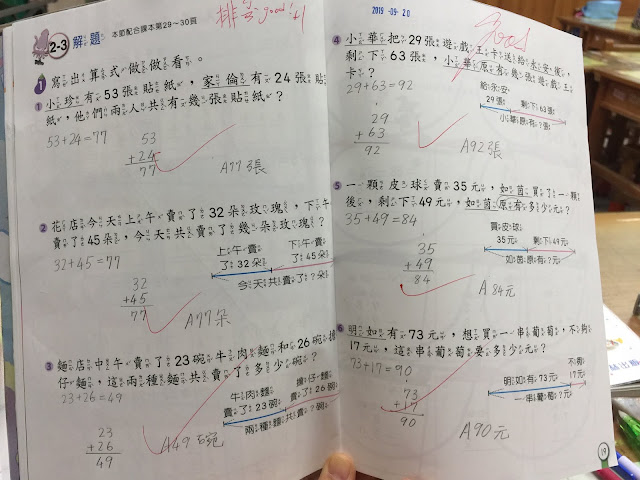 2-3 解題 本節配合課本第29~30頁
good! +1
1 寫出算式做做看。
1 小珍有53張貼紙,家倫有24張貼
紙,他們兩人共有幾張貼紙?
53+24=77
53
+24
77
A77張
2 花店今天上午賣了32朵玫瑰,下午
賣了45朵,今天共賣了幾朵玫瑰?
32+45=77
上午賣了32朵 下午賣了45朵
今天共賣了?朵
32
+45
77
A77朵
3 麵店中午賣了23碗牛肉麵和26碗擔
仔麵,這兩種麵共賣了多少碗?
23+26=49
牛肉麵賣了23碗 擔仔麵賣了26碗
兩種麵共賣?碗
23
+26
49
A49碗
2019-09-20
good
4 小華把29張遊戲王卡送給永安後,
剩下63張,小華原有幾張遊戲王
卡?
29+63=92
給永安29張 剩下63張
小華原有?張
29
+63
92
A92張
5 一顆皮球賣35元,如茵買了一顆
後,剩下49元,如茵原有多少元?
35+49=84
買皮球35元 剩下49元
如茵原有?元
35
+49
84
A84元
6 明如有73元,想買一串葡萄,不夠
17元,這串葡萄要多少元?
73+17=90
明如有73元 不夠17元
一串葡萄?元
73
+17
90
A90元
19